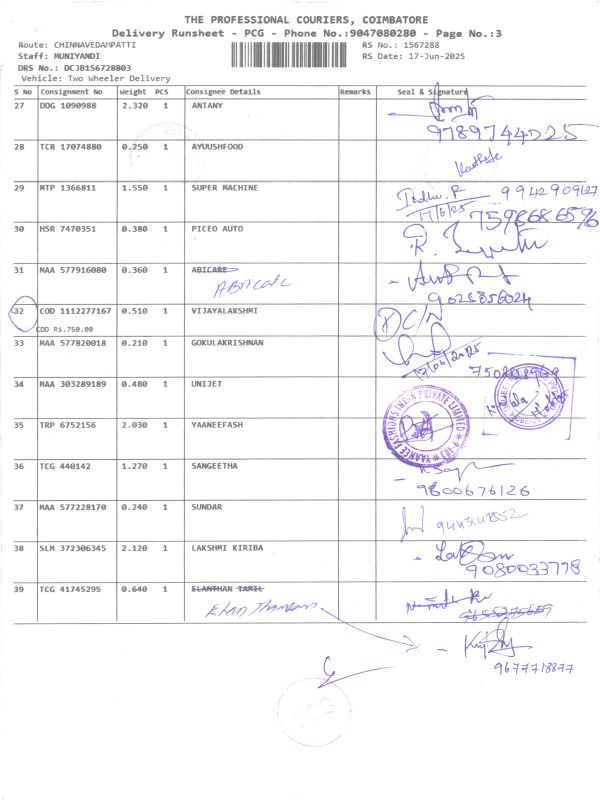 THE PROFESSIONAL COURIERS, COIMBATORE
Delivery Runsheet - PCG - Phone No.:9047080280 - Page No.:3
Route: CHINNAVEDAMPATTI RS No.: 1567288
Staff: MUNIYANDI RS Date: 17-Jun-2025
DRS No.: DCJB156728803
Vehicle: Two Wheeler Delivery
S No Consignment No Weight PCS Consignee Details Remarks Seal & Signature
27 DDG 1090988 2.320 1 ANTANY
9789744025
28 TCR 17074880 0.250 1 AYUUSHFOOD
29 MTP 1366811 1.550 1 SUPER MACHINE
Indhu.R 9942909627
17/6/25 7598686596
30 HSR 7470351 0.380 1 PICEO AUTO
31 MAA 577916080 0.360 1 ABICARE
Abicare
9025856024
32 COD 1112277167 0.510 1 VIJAYALAKSHMI
COD Rs.750.00
C/N
33 MAA 577820018 0.210 1 GOKULAKRISHNAN
17/06/2025
34 MAA 303289189 0.480 1 UNIJET
35 TRP 6752156 2.030 1 YAANEEFASH
YAANEE FASHIONS INDIA PRIVATE LIMITED
36 TCG 440142 1.270 1 SANGEETHA
9800676126
37 MAA 577228170 0.240 1 SUNDAR
38 SLM 372306345 2.120 1 LAKSHMI KIRIBA
9080033778
39 TCG 41745295 0.640 1 ELANTHAN TAMIL
9677718877